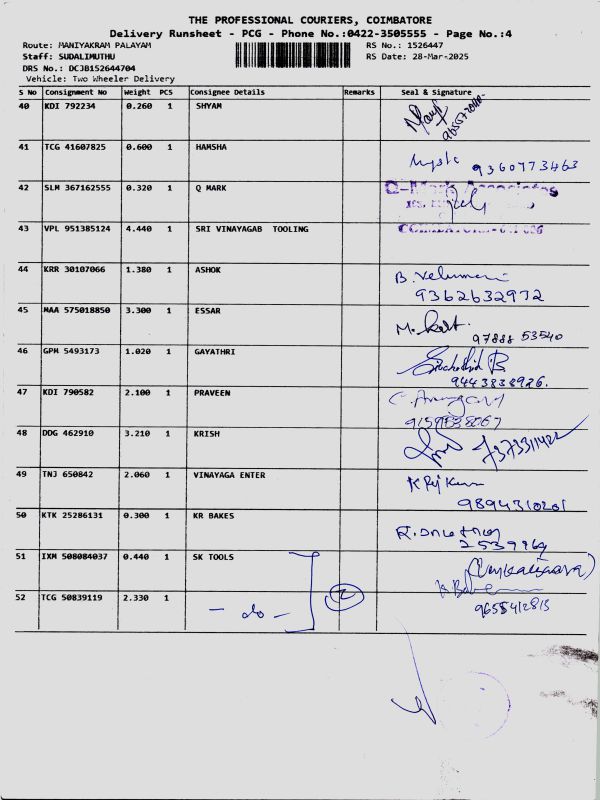 THE PROFESSIONAL COURIERS, COIMBATORE
Delivery Runsheet - PCG - Phone No.:0422-3505555 - Page No.:4
Route: MANIYAKRAM PALAYAM RS No.: 1526447
Staff: SUDALIMUTHU RS Date: 28-Mar-2025
DRS No.: DCJB152644704
Vehicle: Two Wheeler Delivery
S No Consignment No Weight PCS Consignee Details Remarks Seal & Signature
40 KDI 792234 0.260 1 SHYAM
41 TCG 41607825 0.600 1 HAMSHA 9360773463
42 SLM 367162555 0.320 1 Q MARK Q-Mark Associates
43 VPL 951385124 4.440 1 SRI VINAYAGAB TOOLING COIMBATORE
44 KRR 30107066 1.380 1 ASHOK B. Velumani
9362632972
45 MAA 575018850 3.300 1 ESSAR M.
97888 53540
46 GPM 5493173 1.020 1 GAYATHRI
9443838926.
47 KDI 790582 2.100 1 PRAVEEN
48 DDG 462910 3.210 1 KRISH
49 TNJ 650842 2.060 1 VINAYAGA ENTER
9894310201
50 KTK 25286131 0.300 1 KR BAKES
51 IXM 508084037 0.440 1 SK TOOLS
52 TCG 50839119 2.330 1 - do - 2 9655412813